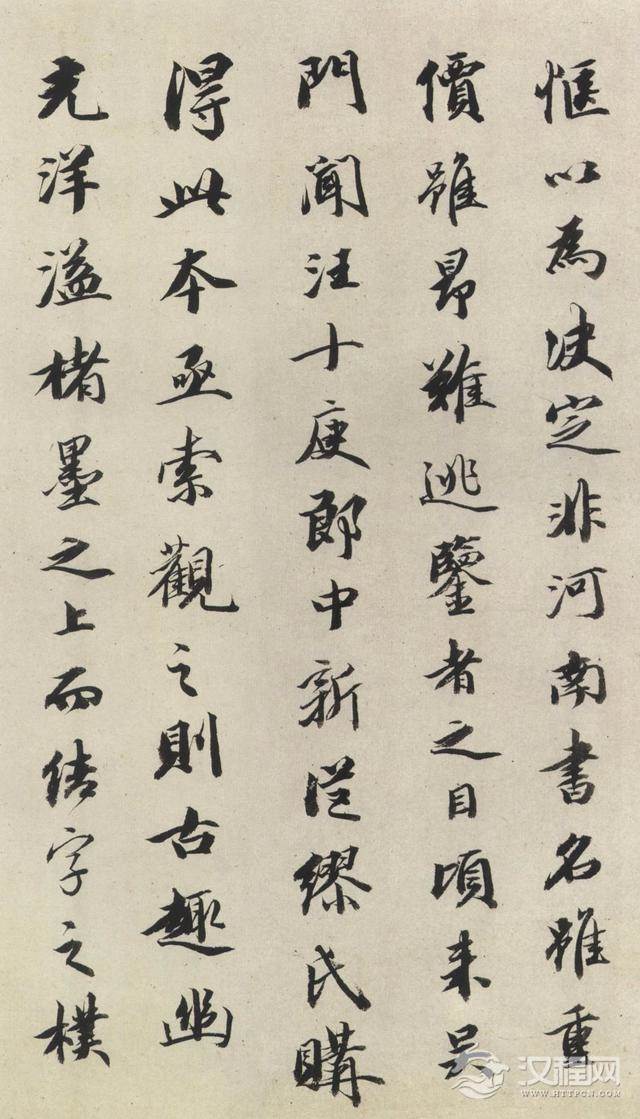 愜以為決定非河南書名雖重
價雖昂難逃鑒者之目頃來吳
門聞汪十庚郎中新從繆氏購
得此本亟索觀之則古趣幽
光洋溢楮墨之上而結字之樸
汉程网
WWW.HTTPCN.COM